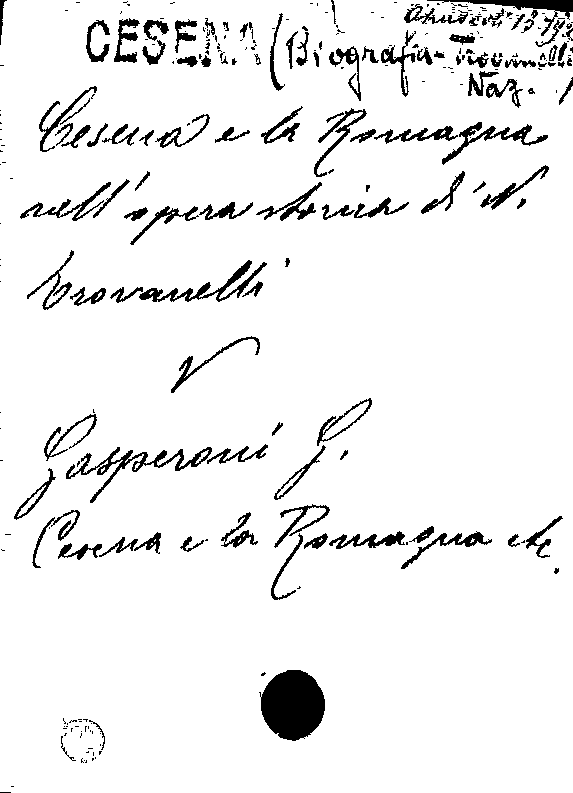 Opuscoli 13
CESENA (Biografia - Trovanelli
Naz.
Cesena e la Romagna
nell'opera storica di N.
Trovanelli
V
Gasperoni G.
Cesena e la Romagna etc.